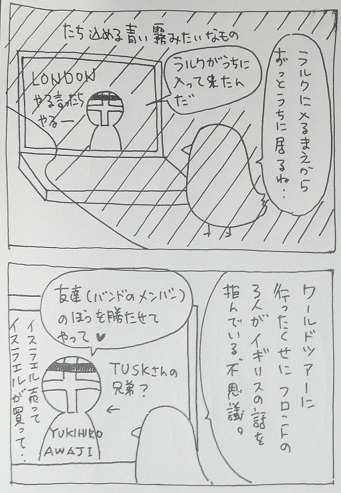 たち込める青い霧みたいなもの
ラルクに入るまえから
ずっとうちに居るね…
ラルクがうちに
入って来たん
だ
LONDON
やる言ったら
やるー
ワールドツアーに
行ったくせにフロントの
3人がイギリスの話を
拒んでいる、不思議。
友達(バンドのメンバー)
のほうを勝たせて
やって♥
TUSKさんの
兄弟?
←
イスラエル売って
イスラエルが買って…
YUKIHIRO
AWAJI